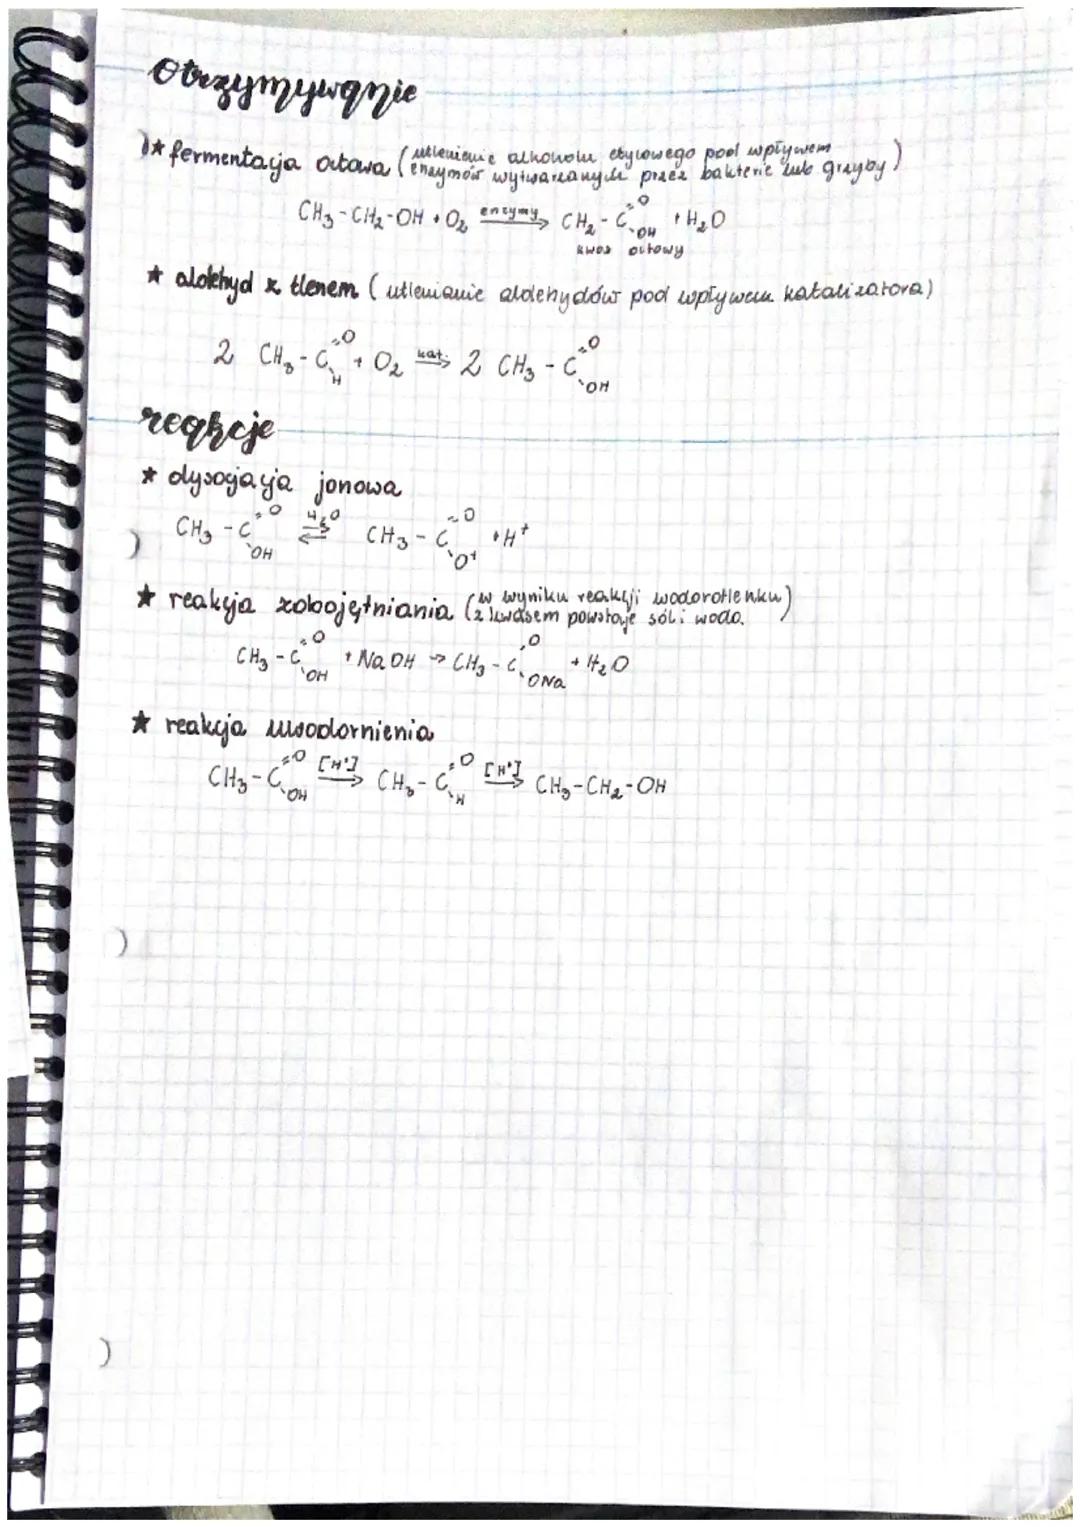 otrzymywanie
* fermentacja octowa (utlenianie alkoholu etylowego pod wpływem
enzymów wytwarzanych przez bakterie lub grzyby)
CH₃-CH₂-OH + O₂ enzymy→ CH₂-C=O -OH + H₂O
kwas octowy
* aldehyd z tlenem (utlenianie aldehydów pod wpływem katalizatora)
2 CH₃-C=O -H + O₂ kat.→ 2 CH₃-C=O -OH
reakcje
* dysocjacja jonowa
CH₃-C=O -OH H₂O⇌ CH₃-C=O -O⁺ + H⁺
* reakcja zobojętniania (w wyniku reakcji wodorotlenku
z kwasem powstaje sól i woda.)
CH₃-C=O -OH + NaOH → CH₃-C=O -ONa + H₂O
* reakcja uwodornienia
CH₃-C=O -OH [H']→ CH₃-C=O -H [H']→ CH₃-CH₂-OH